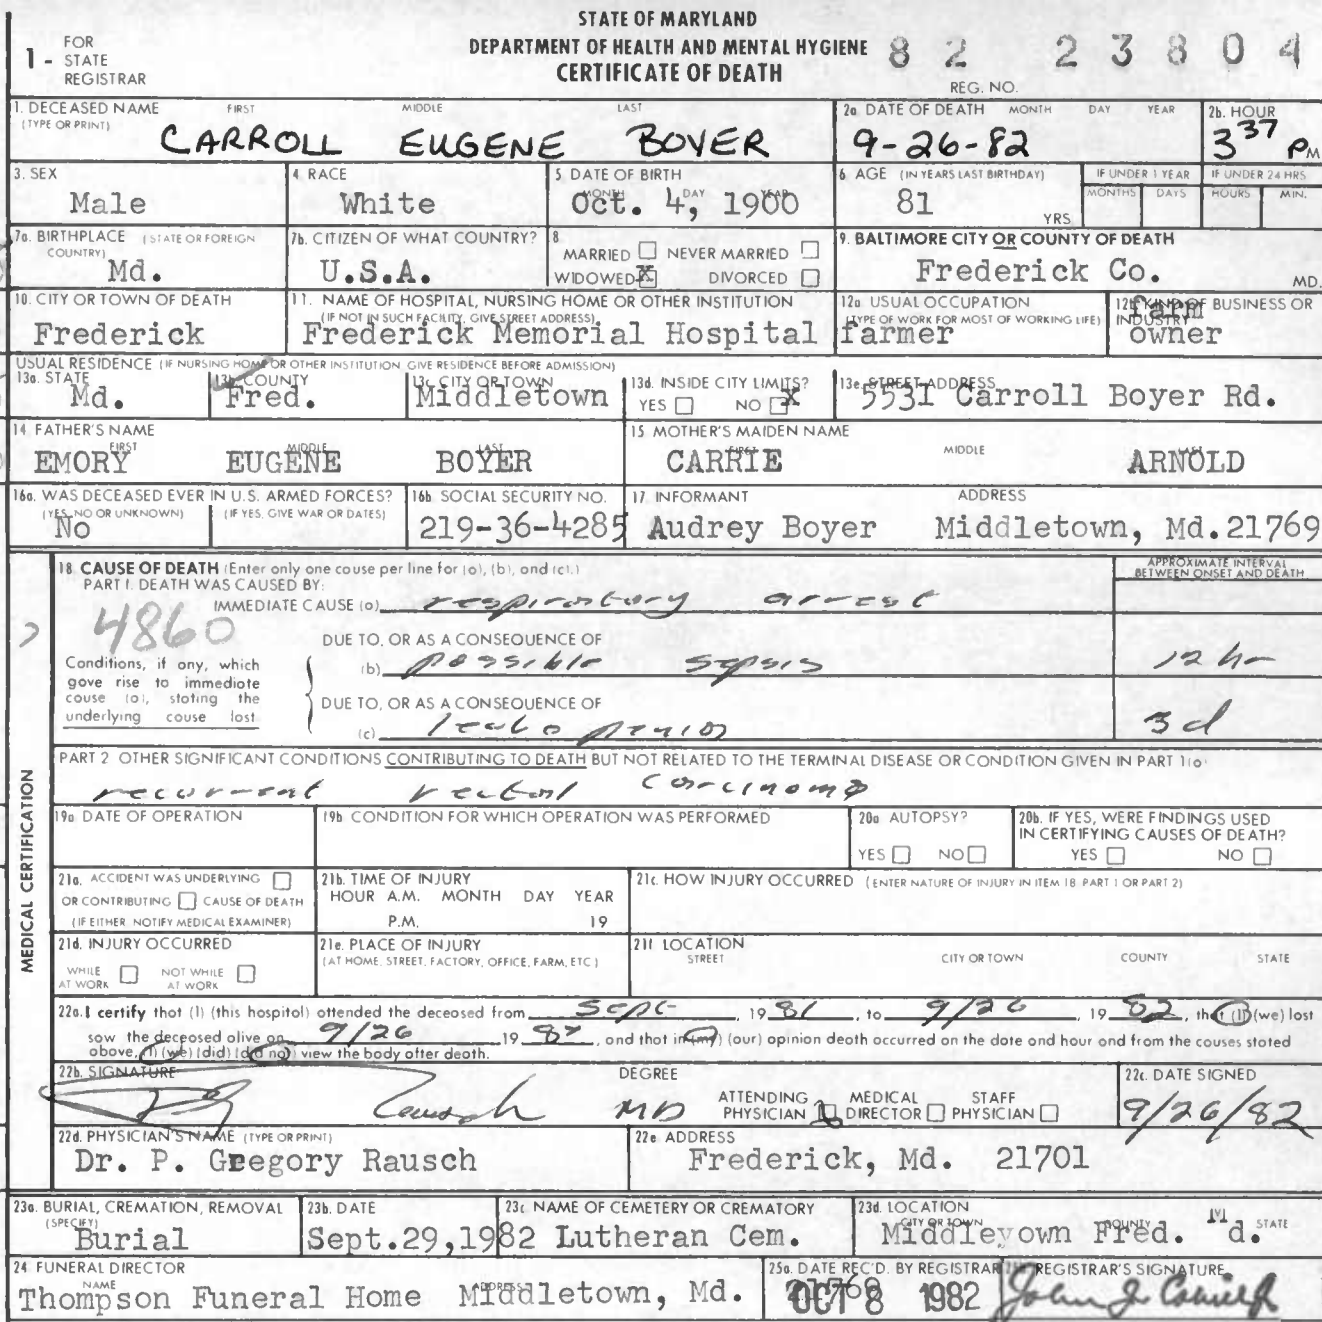 STATE OF MARYLAND
DEPARTMENT OF HEALTH AND MENTAL HYGIENE
CERTIFICATE OF DEATH
1 - FOR STATE REGISTRAR
82 23804
REG. NO.
1. DECEASED NAME (TYPE OR PRINT) FIRST MIDDLE LAST
CARROLL EUGENE BOYER
2a DATE OF DEATH MONTH DAY YEAR
9-26-82
2b. HOUR
3 37 PM
3. SEX
Male
4. RACE
White
5. DATE OF BIRTH MONTH DAY YEAR
Oct. 4, 1900
6. AGE (IN YEARS LAST BIRTHDAY)
81 YRS
IF UNDER 1 YEAR MONTHS DAYS
IF UNDER 24 HRS HOURS MIN.
7a. BIRTHPLACE (STATE OR FOREIGN COUNTRY)
Md.
7b. CITIZEN OF WHAT COUNTRY?
U.S.A.
8. MARRIED NEVER MARRIED
WIDOWED X DIVORCED
9. BALTIMORE CITY OR COUNTY OF DEATH
Frederick Co. MD.
10. CITY OR TOWN OF DEATH
Frederick
11. NAME OF HOSPITAL, NURSING HOME OR OTHER INSTITUTION
(IF NOT IN SUCH FACILITY, GIVE STREET ADDRESS)
Frederick Memorial Hospital
12a. USUAL OCCUPATION
(TYPE OF WORK FOR MOST OF WORKING LIFE)
farmer
12b. KIND OF BUSINESS OR INDUSTRY
farm
owner
USUAL RESIDENCE (IF NURSING HOME OR OTHER INSTITUTION GIVE RESIDENCE BEFORE ADMISSION)
13a. STATE
Md.
13b. COUNTY
Fred.
13c. CITY OR TOWN
Middletown
13d. INSIDE CITY LIMITS?
YES NO X
13e. STREET ADDRESS
5531 Carroll Boyer Rd.
14. FATHER'S NAME FIRST MIDDLE LAST
EMORY EUGENE BOYER
15 MOTHER'S MAIDEN NAME FIRST MIDDLE LAST
CARRIE ARNOLD
16a. WAS DECEASED EVER IN U.S. ARMED FORCES?
(YES, NO OR UNKNOWN) (IF YES, GIVE WAR OR DATES)
No
16b. SOCIAL SECURITY NO.
219-36-4285
17. INFORMANT ADDRESS
Audrey Boyer Middletown, Md.21769
18. CAUSE OF DEATH (Enter only one cause per line for (a), (b), and (c).)
PART 1. DEATH WAS CAUSED BY:
APPROXIMATE INTERVAL BETWEEN ONSET AND DEATH
IMMEDIATE CAUSE (a) respiratory arrest
4860
DUE TO, OR AS A CONSEQUENCE OF
(b) possible sepsis 12 hr
Conditions, if any, which gave rise to immediate cause (a), stating the underlying cause last
DUE TO, OR AS A CONSEQUENCE OF
(c) leukopenia 3 d
PART 2 OTHER SIGNIFICANT CONDITIONS CONTRIBUTING TO DEATH BUT NOT RELATED TO THE TERMINAL DISEASE OR CONDITION GIVEN IN PART 1(a)
recurrent rectal carcinoma
MEDICAL CERTIFICATION
19a DATE OF OPERATION
19b CONDITION FOR WHICH OPERATION WAS PERFORMED
20a AUTOPSY?
YES NO
20b. IF YES, WERE FINDINGS USED IN CERTIFYING CAUSES OF DEATH?
YES NO
21a. ACCIDENT WAS UNDERLYING
OR CONTRIBUTING CAUSE OF DEATH
(IF EITHER NOTIFY MEDICAL EXAMINER)
21b. TIME OF INJURY
HOUR A.M. MONTH DAY YEAR
P.M. 19
21c. HOW INJURY OCCURRED (ENTER NATURE OF INJURY IN ITEM 18 PART 1 OR PART 2)
21d. INJURY OCCURRED
WHILE AT WORK NOT WHILE AT WORK
21e. PLACE OF INJURY
(AT HOME, STREET, FACTORY, OFFICE, FARM, ETC)
21f LOCATION
STREET CITY OR TOWN COUNTY STATE
22a. I certify that (I) (this hospital) attended the deceased from Sept, 19 81, to 9/26, 19 82, that (I) (we) last
saw the deceased alive on 9/26 19 82, and that in (my) (our) opinion death occurred on the date and hour and from the causes stated
above, (I) (we) (did) (did not) view the body after death.
22b. SIGNATURE DEGREE
Rausch MD
ATTENDING PHYSICIAN MEDICAL DIRECTOR STAFF PHYSICIAN
22c. DATE SIGNED
9/26/82
22d. PHYSICIAN'S NAME (TYPE OR PRINT)
Dr. P. Gregory Rausch
22e ADDRESS
Frederick, Md. 21701
23a. BURIAL, CREMATION, REMOVAL (SPECIFY)
Burial
23b. DATE
Sept.29,1982
23c NAME OF CEMETERY OR CREMATORY
Lutheran Cem.
23d. LOCATION CITY OR TOWN COUNTY STATE
Middleyown Fred. Md.
24 FUNERAL DIRECTOR
NAME ADDRESS
Thompson Funeral Home Middletown, Md. 21768
25a. DATE REC'D. BY REGISTRAR
OCT 8 1982
REGISTRAR'S SIGNATURE